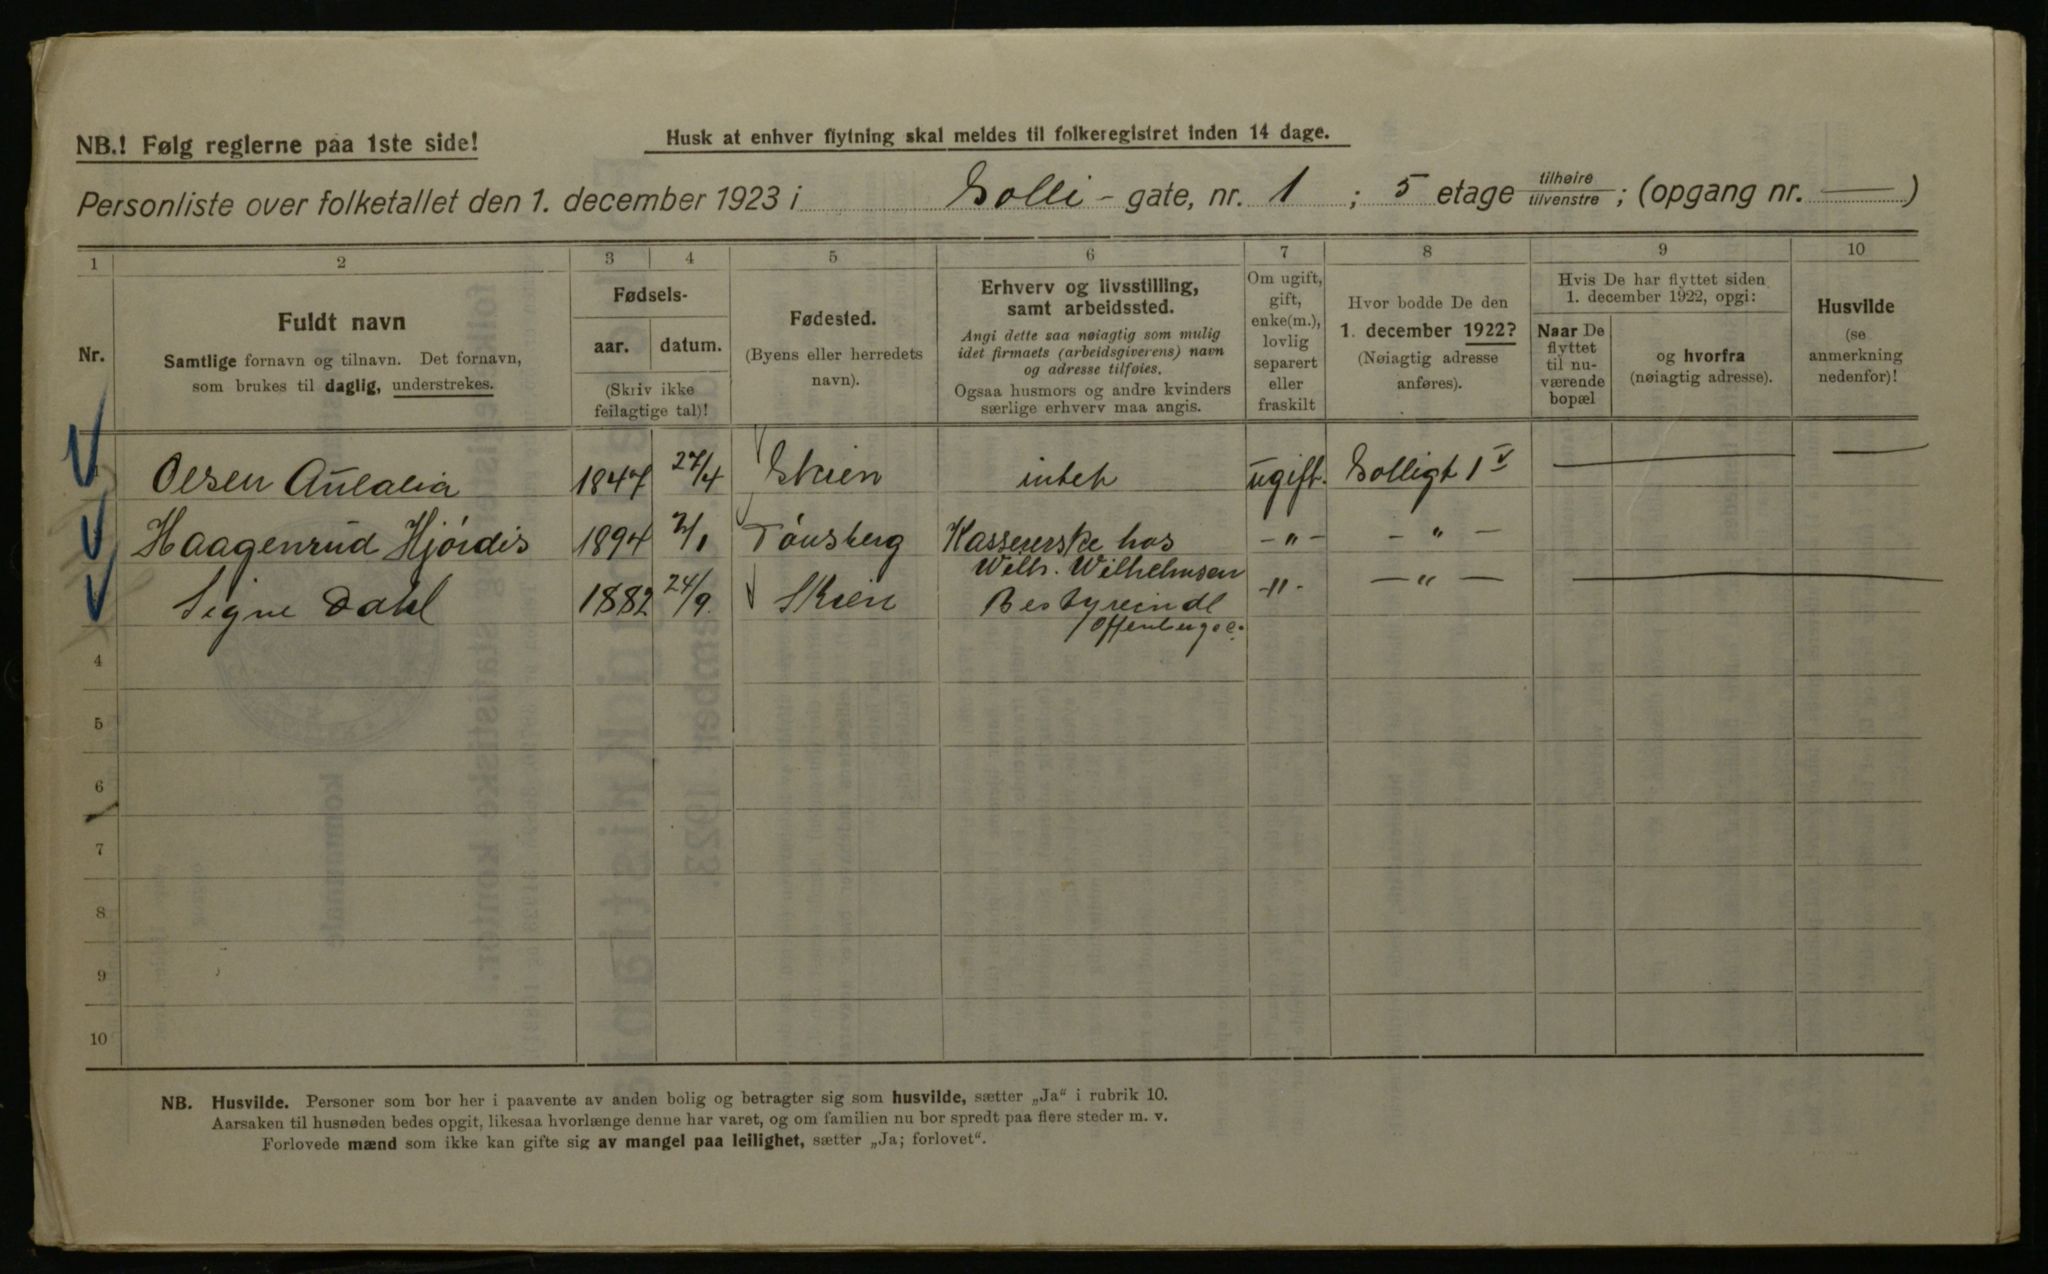 NB.! Følg reglerne paa 1ste side!
Husk at enhver flytning skal meldes til folkeregistret inden 14 dage.
Personliste over folketallet den 1. december 1923 i Solli - gate, nr. 1 ; 5 etage tilhøire/tilvenstre ; (opgang nr. — )
1 2 3 4 5 6 7 8 9 10
Nr.
Fuldt navn
Samtlige fornavn og tilnavn. Det fornavn,
som brukes til daglig, understrekes.
Fødsels-
aar. datum.
(Skriv ikke
feilagtige tal)!
Fødested.
(Byens eller herredets
navn).
Erhverv og livsstilling,
samt arbeidssted.
Angi dette saa nøiagtig som mulig
idet firmaets (arbeidsgiverens) navn
og adresse tilføies.
Ogsaa husmors og andre kvinders
særlige erhverv maa angis.
Om ugift,
gift,
enke(m.),
lovlig
separert
eller
fraskilt
Hvor bodde De den
1. december 1922?
(Nøiagtig adresse
anføres).
Hvis De har flyttet siden
1. december 1922, opgi:
Naar De
flyttet
til nu-
værende
bopæl
og hvorfra
(nøiagtig adresse).
Husvilde
(se
anmerkning
nedenfor)!
Olsen Aulalia 1847 27/4 Skien intet ugift. Solligt 1 V — —
Haagenrud Hjørdis 1894 2/1 Tønsberg Kassererske hos - " - - " -
Wilh. Wilhelmsen
Signe Dahl 1882 24/9 Skien -"- - " - —
4
5
6
7
8
9
10
NB. Husvilde. Personer som bor her i paavente av anden bolig og betragter sig som husvilde, sætter „Ja“ i rubrik 10.
Aarsaken til husnøden bedes opgit, likesaa hvorlænge denne har varet, og om familien nu bor spredt paa flere steder m. v.
Forlovede mænd som ikke kan gifte sig av mangel paa leilighet, sætter „Ja; forlovet“.